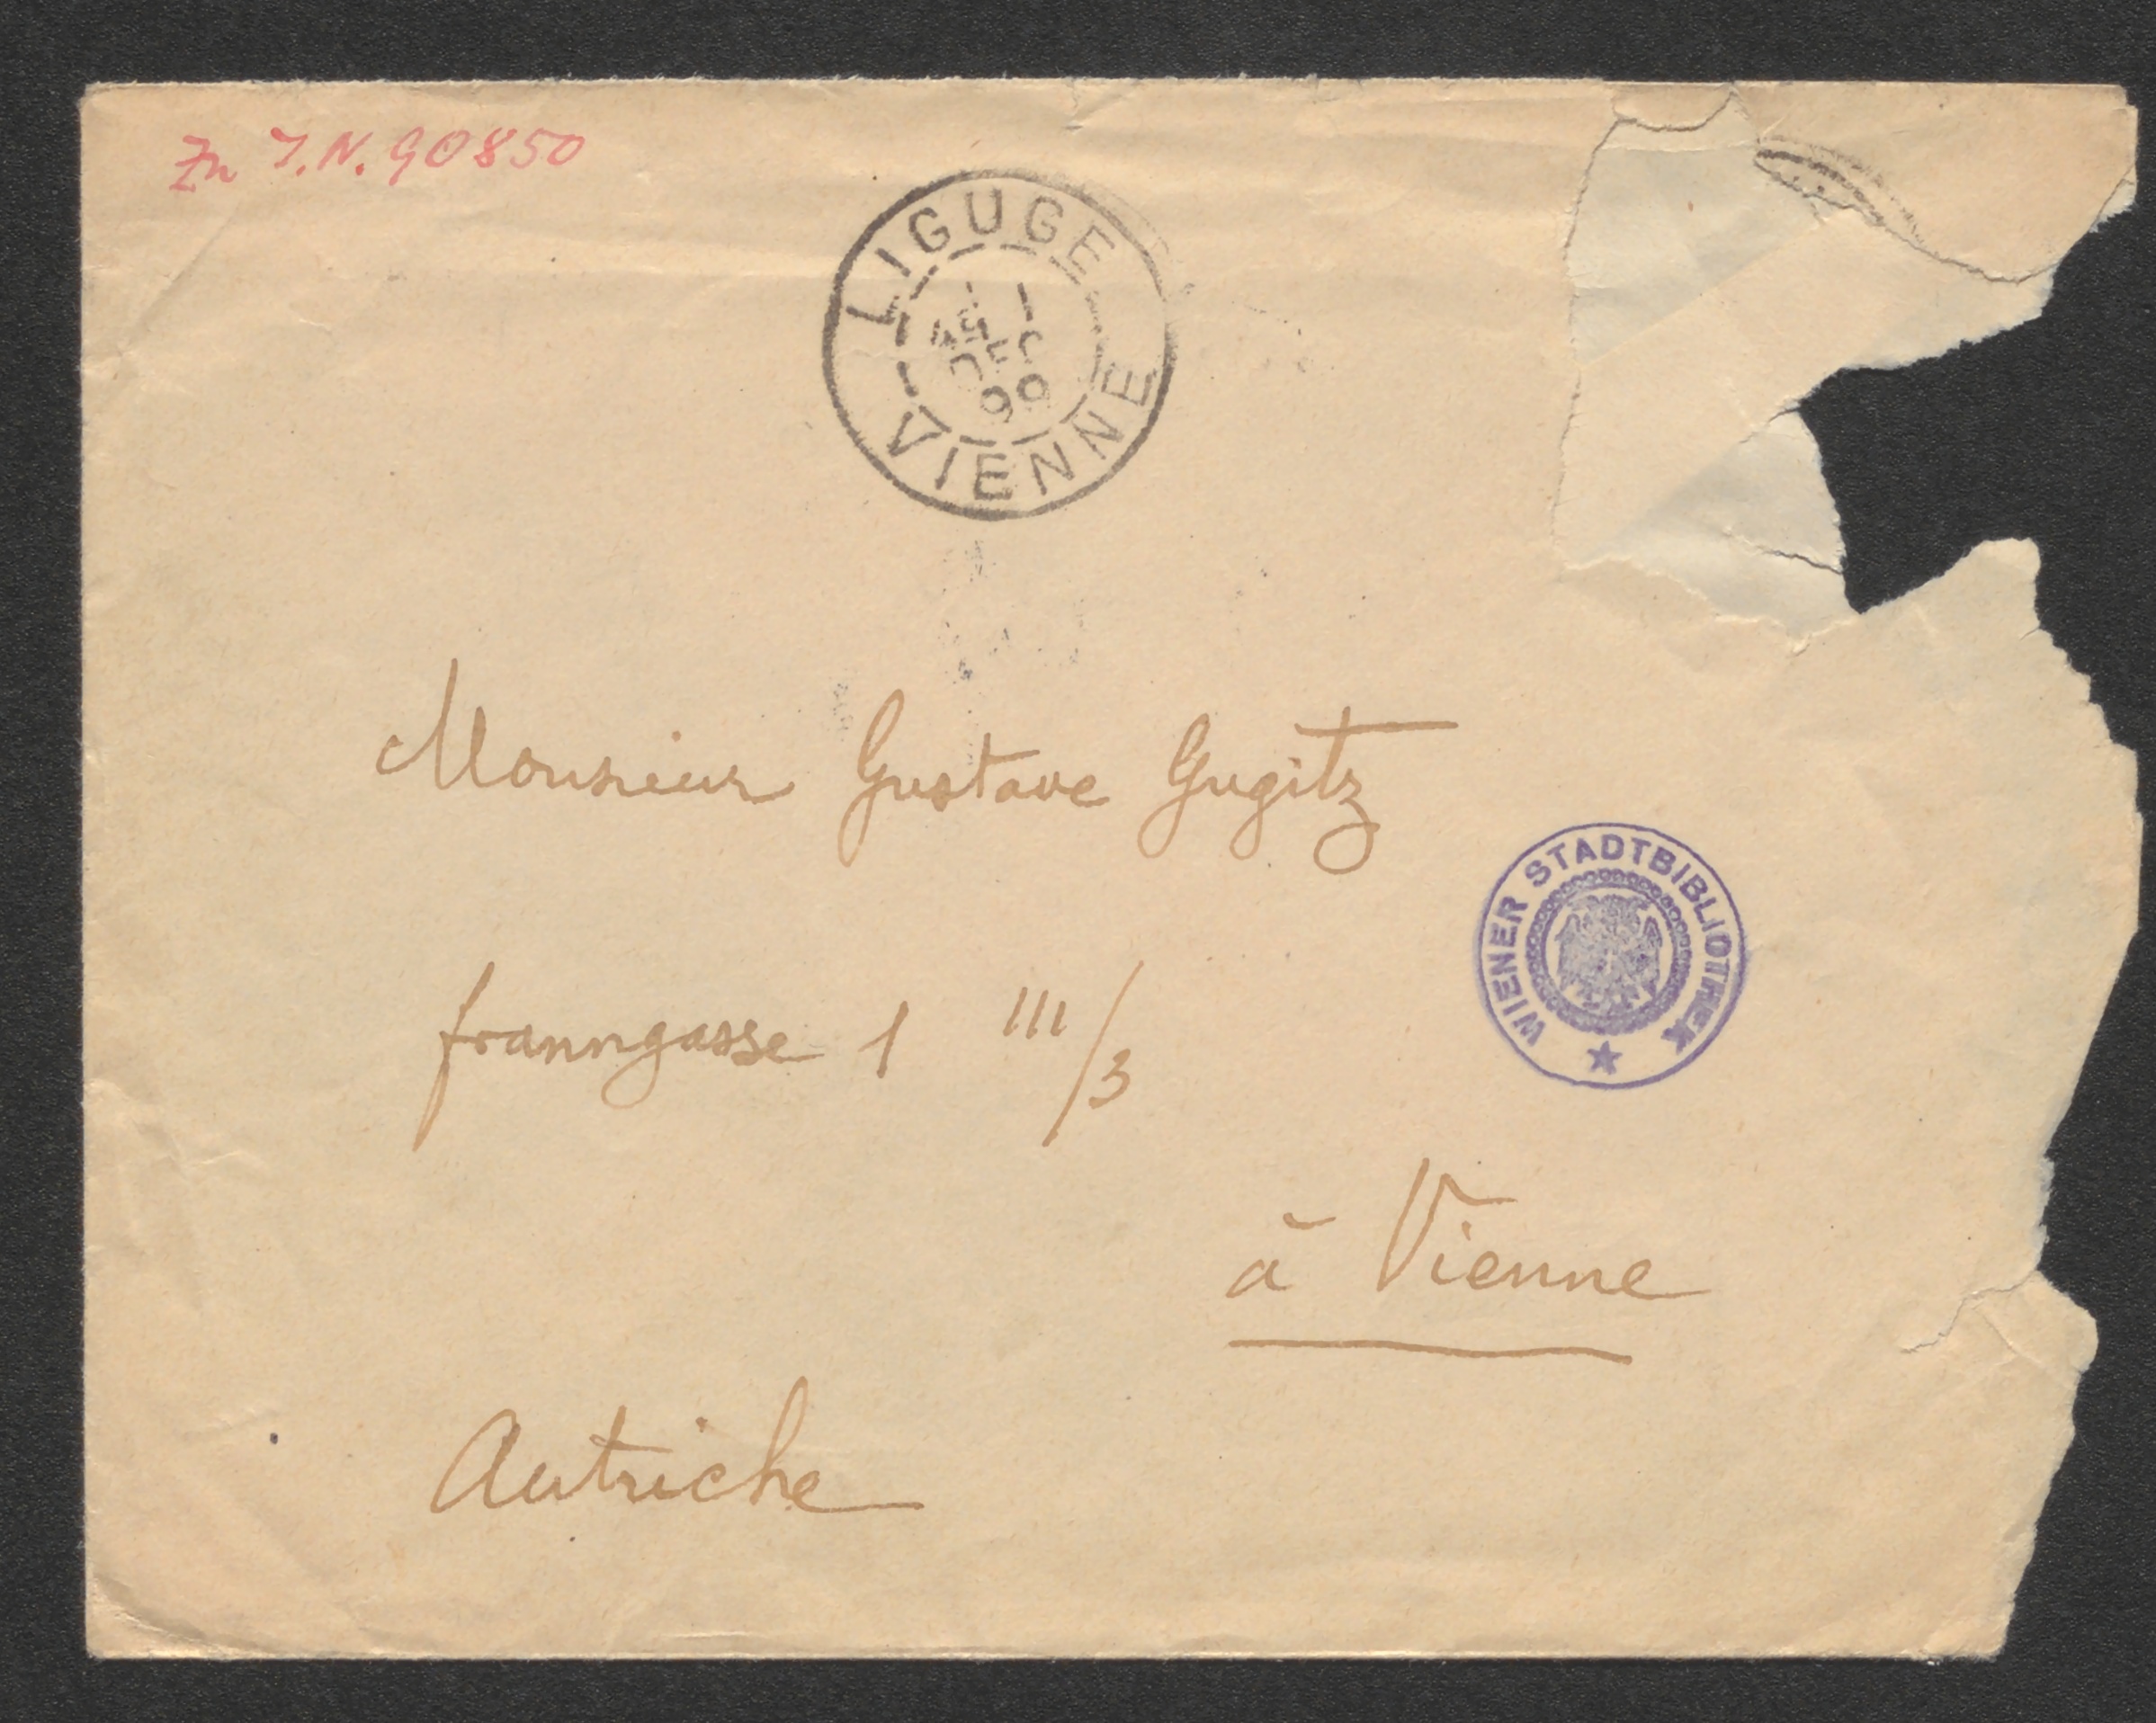 Zu I.N. 90850
LIGUGE
DEC
99
VIENNE
Monsieur Gustave Gugitz
WIENER STADTBIBLIOTHEK
franngasse 1 III/3
à Vienne
Autriche